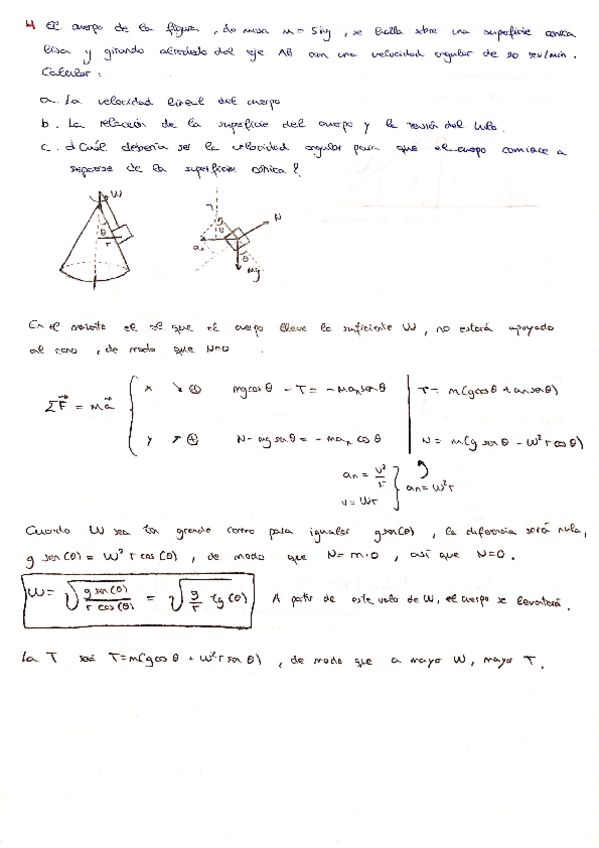 4 El cuerpo de la figura, de masa m = 5 kg, se halla sobre una superficie cónica
lisa y girando alrededor del eje AB con una velocidad angular de 20 rev/min.
Calcular:
a. La velocidad lineal del cuerpo
b. La reacción de la superficie del cuerpo y la tensión del hilo.
c. ¿Cuál debería ser la velocidad angular para que el cuerpo comience a
separarse de la superficie cónica?
W
θ
r
T
N
θ
an
θ
mg
En el que el cuerpo lleve la suficiente W, no estará apoyado
al cono, de modo que N=0.
ΣF = ma
x ↘ ⊕ mg cos θ - T = -m an sen θ
T = m(g cos θ + an sen θ)
y ↗ ⊕ N - mg sen θ = -man cos θ
N = m(g sen θ - W² r cos θ)
an = v²/r
v = Wr
an = W² r
Cuando W sea tan grande como para igualar g sen(θ), la diferencia será nula,
g sen(θ) = W² r cos(θ), de modo que N = m·0, así que N=0.
W = √(g sen(θ) / r cos(θ)) = √(g/r tg(θ)) A partir de este valor de W, el cuerpo se levantará.
La T será T = m(g cos θ + W² r sen θ), de modo que a mayor W, mayor T.